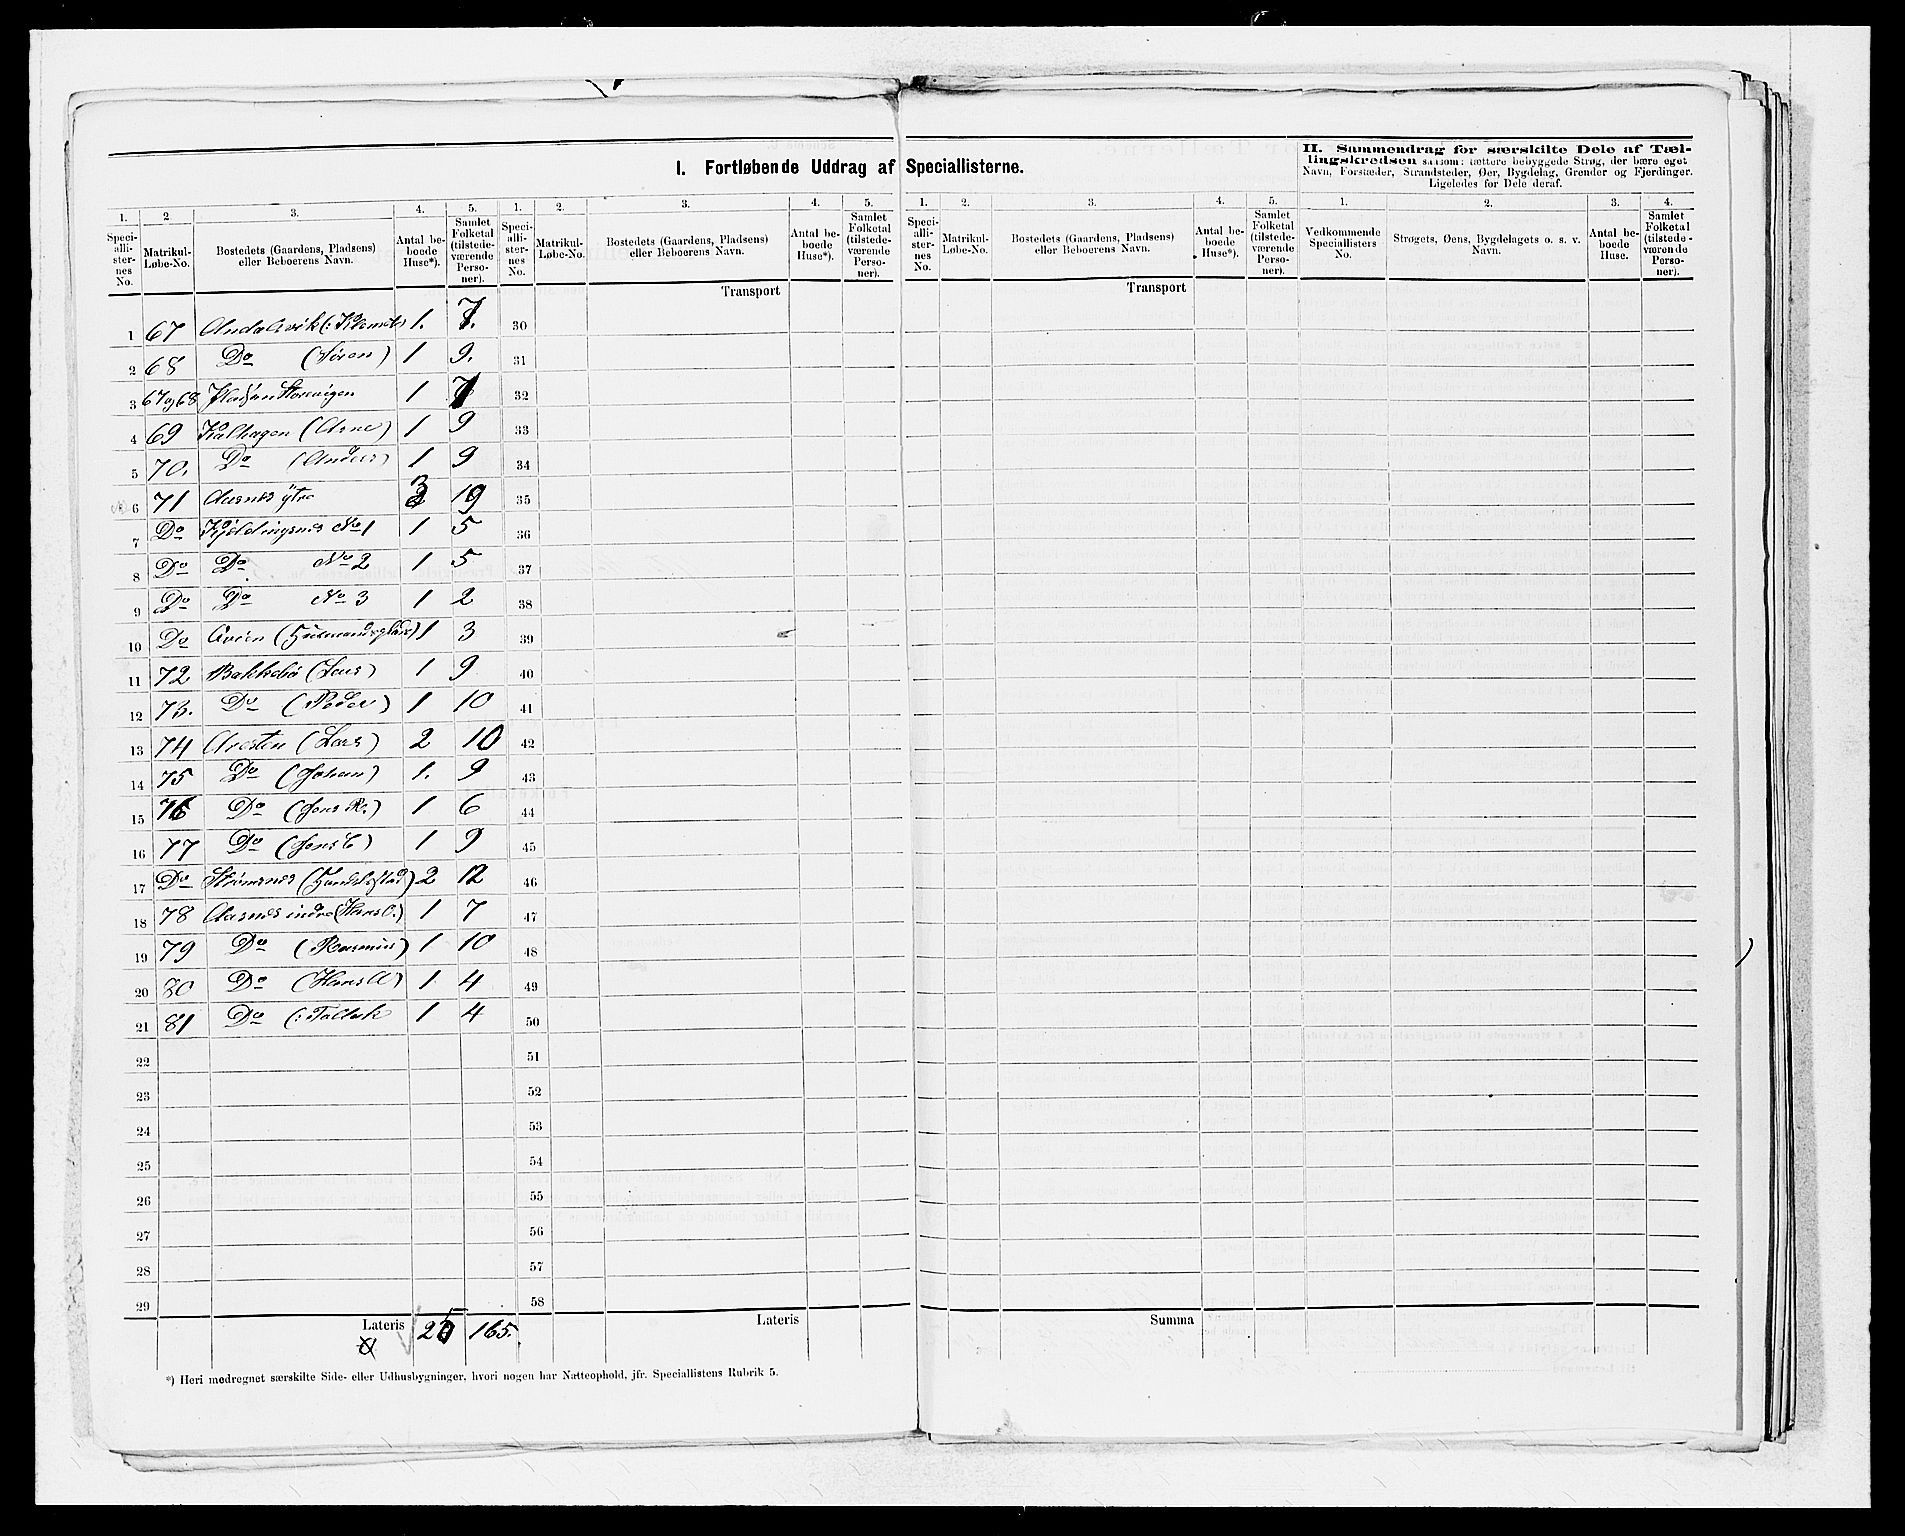 I. Fortløbende Uddrag af Speciallisterne.
II. Sammendrag for særskilte Dele af Tæl-
lingskredsen saasom: tættere bebyggede Strøg, der bære eget
Navn, Forstæder, Strandsteder, Øer, Bygdelag, Grender og Fjerdinger.
Ligeledes for Dele deraf.
1. 2. 3. 4. 5. 1. 2. 3. 4. 5. 1. 2. 3. 4. 5. 1. 2. 3. 4.
Speciallisternes No. Matrikul-Løbe-No. Bostedets (Gaardens, Pladsens) eller Beboerens Navn. Antal beboede Huse*). Samlet Folketal (tilstedeværende Personer).
Speciallisternes No. Matrikul-Løbe-No. Bostedets (Gaardens, Pladsens) eller Beboerens Navn. Antal beboede Huse*). Samlet Folketal (tilstedeværende Personer).
Speciallisternes No. Matrikul-Løbe-No. Bostedets (Gaardens, Pladsens) eller Beboerens Navn. Antal beboede Huse*). Samlet Folketal (tilstedeværende Personer).
Vedkommende Speciallisters No. Strøgets, Øens, Bygdelagets o. s. v. Navn. Antal beboede Huse. Samlet Folketal (tilstedeværende Personer).
Transport Transport
1 67 1. 7. 30
2 68 Do (Sören) 1 9. 31
3 67 og 68 1 32
4 69 Kalhagen (Arne) 1 9 33
5 70. Do (Anders) 1 9 34
6 71 Aasnes ytre 3 19 35
7 Do Kjeldingsnes No 1 1 5 36
8 Do Do No 2 1 5 37
9 Do Do No 3 1 2 38
10 Do (Husmandsplads) 1 3 39
11 72 Bakkebö (Lars) 1 9 40
12 73. Do (Peder) 1 10 41
13 74 (Lars) 2 10 42
14 75 Do (Johan) 1. 9 43
15 76 Do (Jens R.) 1 6 44
16 77 Do (Jens E) 1 9 45
17 Do Strömsnes (Handelsstad) 2 12 46
18 78 Aasnes indre (Hans O.) 1 7 47
19 79 Do (Rasmus) 1 10 48
20 80 Do (Hans A) 1 4 49
21 81 Do (: Tallak 1 4 50
22 51
23 52
24 53
25 54
26 55
27 56
28 57
29 58
Lateris 25 165. Lateris Summa
*) Heri medregnet særskilte Side- eller Udhusbygninger, hvori nogen har Natteophold, jfr. Speciallistens Rubrik 5.